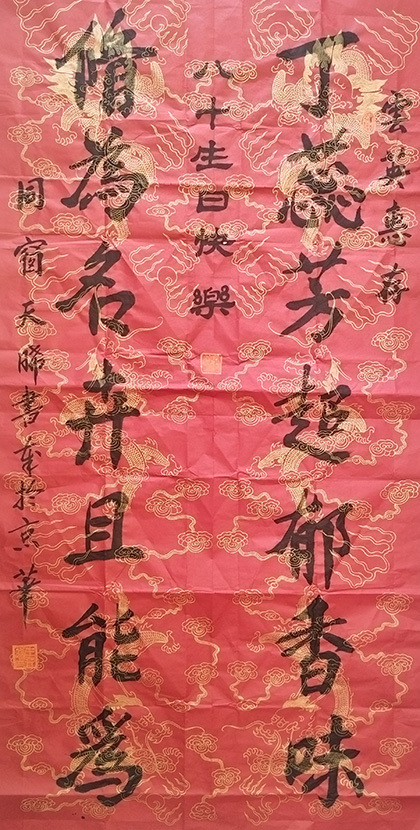 雲英惠存
丁蕊芳超郁香味
八十生日快樂
隋為名卉且能爲
同窗天晞書奉於京華